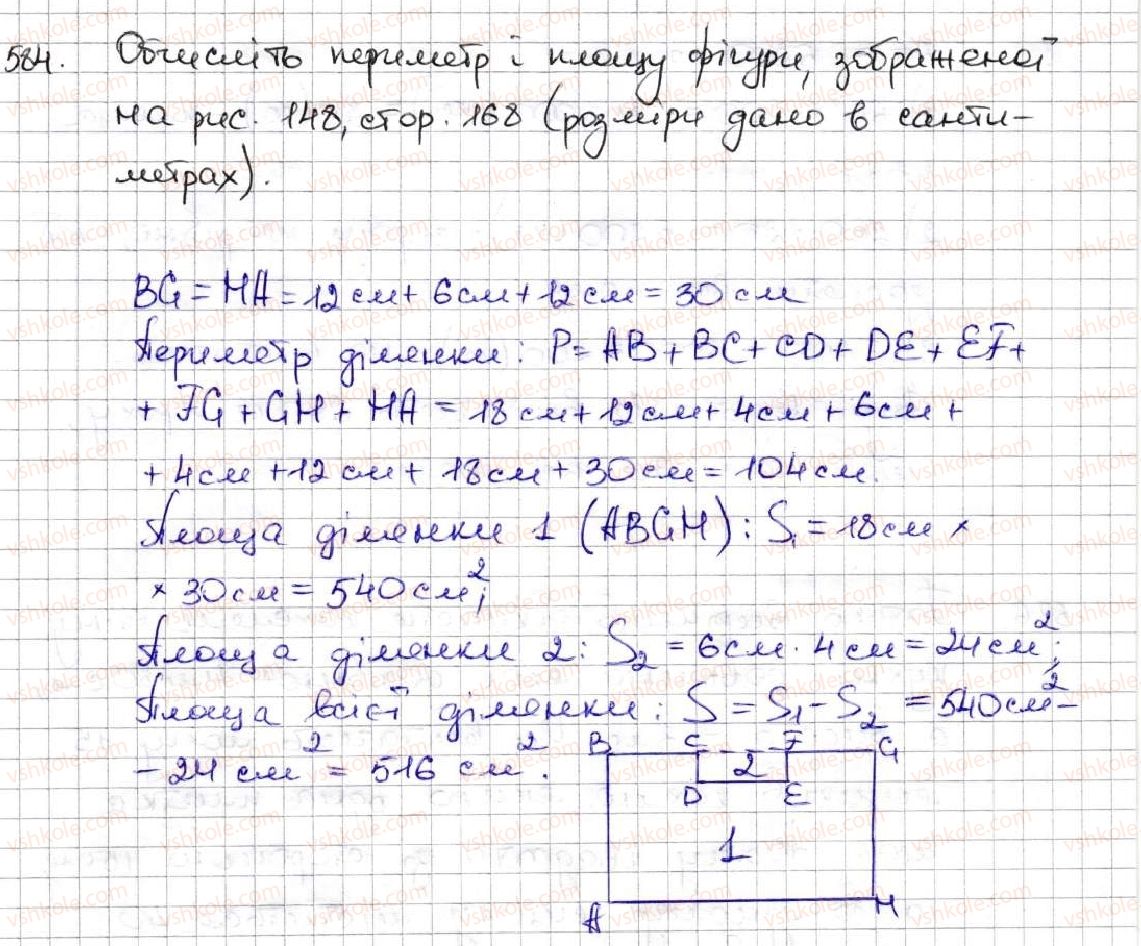 584. Обчисліть периметр і площу фігури, зображеної
на рис. 148, стор. 168 (розміри дано в санти-
метрах).
BG = HA = 12 см + 6 см + 12 см = 30 см
Периметр ділянки: P = AB + BC + CD + DE + EF +
+ FG + GH + HA = 18 см + 12 см + 4 см + 6 см +
+ 4 см + 12 см + 18 см + 30 см = 104 см.
Площа ділянки 1 (ABGH): S₁ = 18 см ×
× 30 см = 540 см²;
Площа ділянки 2: S₂ = 6 см · 4 см = 24 см²;
Площа всієї ділянки: S = S₁ - S₂ = 540 см² -
- 24 см² = 516 см².
B C F G
2
D E
1
A H
vshkole.com